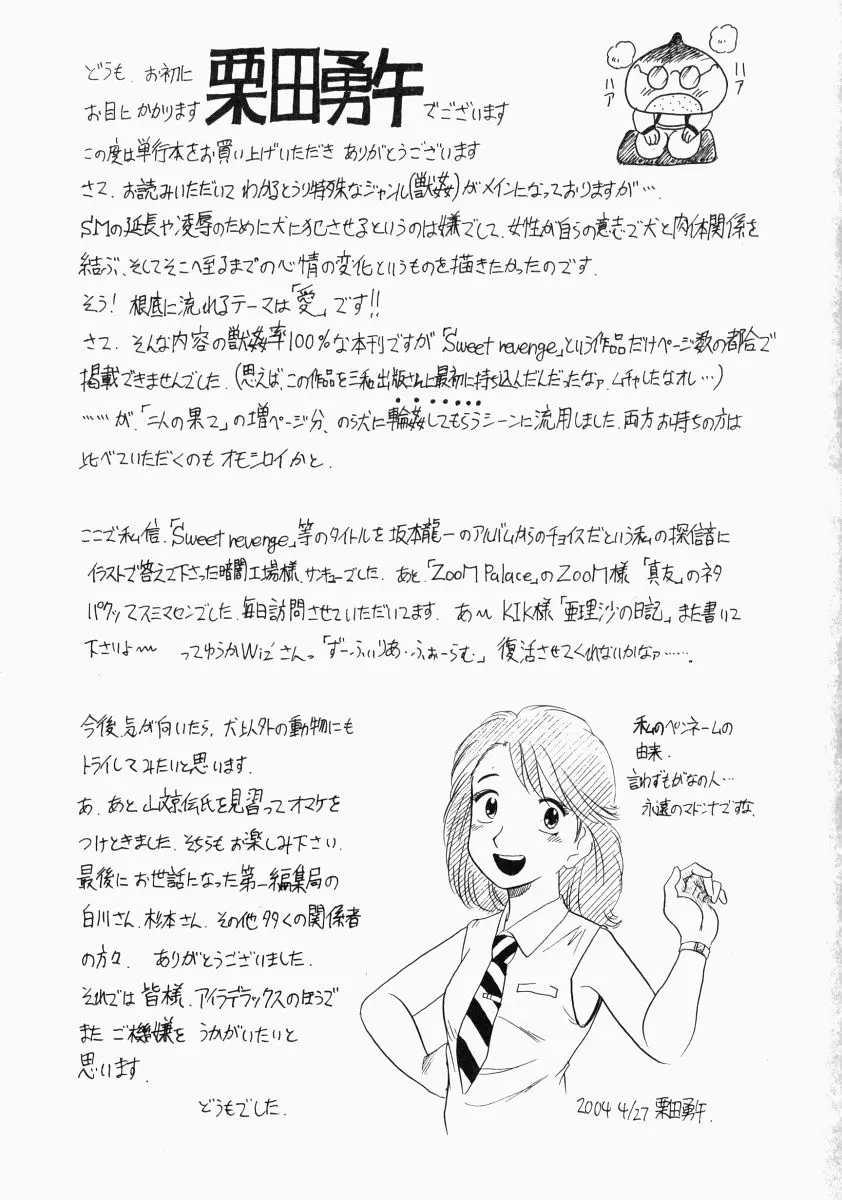 どうも、お初に
お目にかかります 栗田勇午 でございます
ハア
ハア
この度は単行本をお買い上げいただき ありがとうございます
さて、お読みいただいて わかるとうり特殊なジャンル(獣姦)がメインになっておりますが…、
SMの延長や凌辱のために犬に犯させるというのは嫌でして、女性が自らの意志で犬と肉体関係を
結ぶ、そしてそこへ至るまでの心情の変化というものを描きたかったのです.
そう! 根底に流れるテーマは「愛」です!!
さて、そんな内容の獣姦率100%な本刊ですが「Sweet revenge」という作品だけページ数の都合で
掲載できませんでした.(思えば、この作品を三和出版さんに最初に持ち込んだんだったなァ.ムチャしたなオレ…)
……が、「二人の果て」の増ページ分、のら犬に輪姦してもらうシーンに流用しました.両方お持ちの方は
比べていただくのも オモシロイかと.
ここで私信.「Sweet revenge」等のタイトルを坂本龍一のアルバムからのチョイスだという私の探信音に
イラストで答えて下さった暗闇工場様、サンキューでした. あと、「ZooM Palace」のZooM様 「真友」のネタ
パクッてスミマセンでした.毎日訪問させていただいてます. あ〜 KIK様「亜理沙の日記」また書いて
下さいよ〜 ってゆうかWiz'さんっ「ずーふぃりあ・ふぉーらむ」 復活させてくれないかなァ…….
今後、気が向いたら、犬以外の動物にも
トライしてみたいと思います.
あ、あと 山文京伝氏を見習って オマケを
つけときました.そちらも お楽しみ下さい.
最後に お世話になった第一編集局の
白川さん、杉本さん、その他 多くの関係者
の方々、 ありがとうございました.
それでは 皆様、アイラデラックスのほうで
また ご機嫌を うかがいたいと
思います.
どうもでした.
私のペンネームの
由来.
言わずもがなの人…
永遠のマドンナですな.
2004 4/27 栗田勇午.